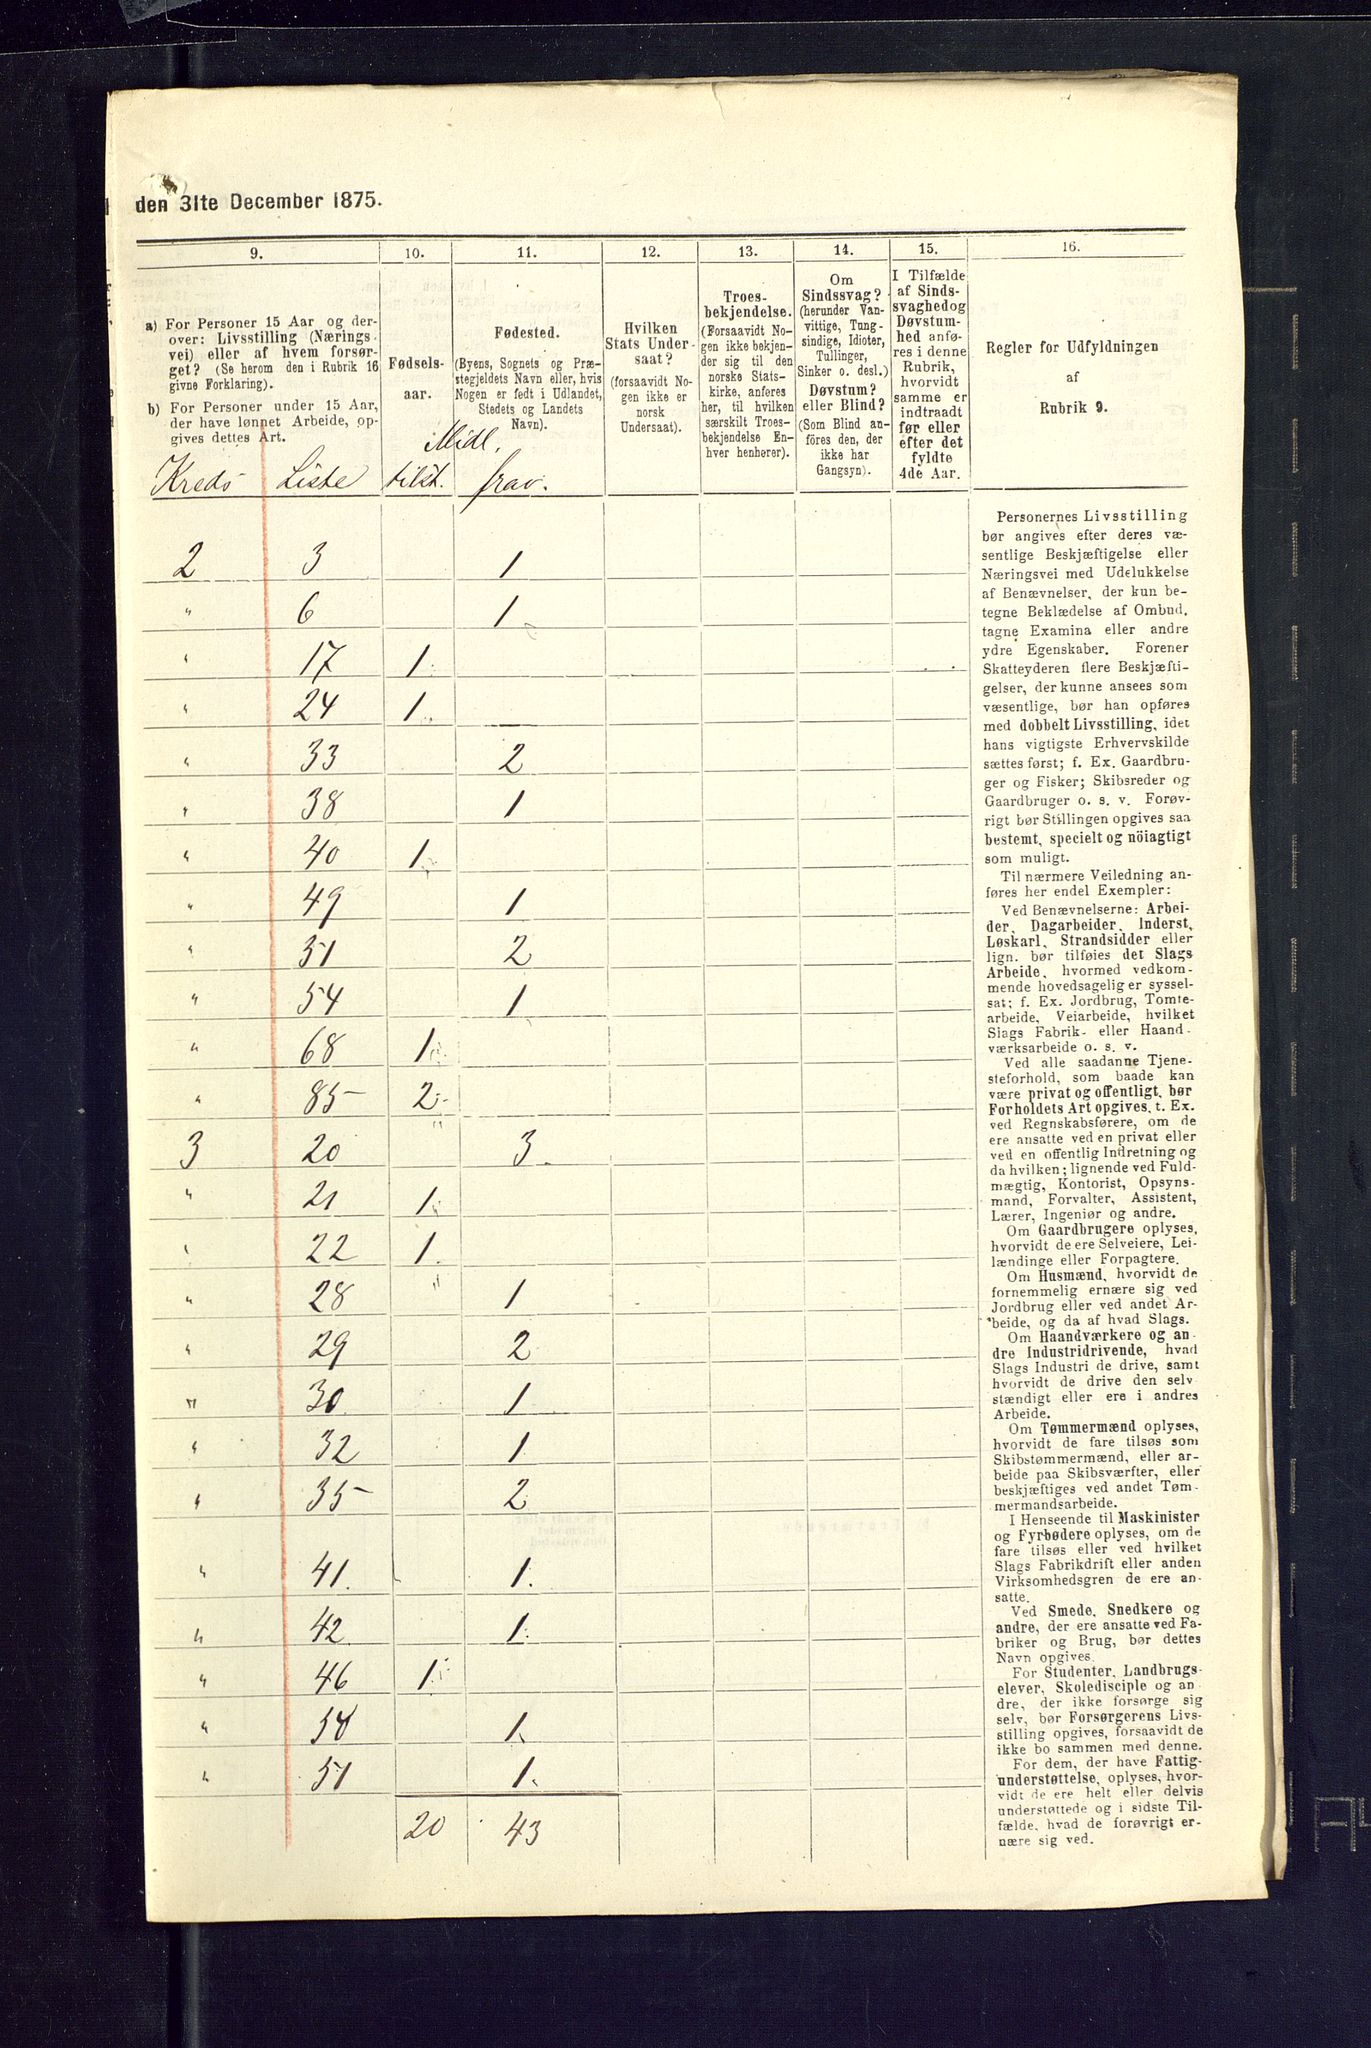 den 31te December 1875.
9. 10. 11. 12. 13. 14. 15. 16.
a) For Personer 15 Aar og der-
over: Livsstilling (Nærings-
vei) eller af hvem forsør-
get? (Se herom den i Rubrik 16
givne Forklaring).
b) For Personer under 15 Aar,
der have lønnet Arbeide, op-
gives dettes Art.
Fødsels-
aar.
Fødested.
(Byens, Sognets og Præ-
stegjeldets Navn eller, hvis
Nogen er født i Udlandet,
Stedets og Landets
Navn).
Hvilken
Stats Under-
saat?
(forsaavidt No-
gen ikke er
norsk
Undersaat).
Troes-
bekjendelse.
(Forsaavidt No-
gen ikke bekjen-
der sig til den
norske Stats-
kirke, anføres
her, til hvilken
særskilt Troes-
bekjendelse En-
hver henhører).
Om
Sindssvag?
(herunder Van-
vittige, Tung-
sindige, Idioter,
Tullinger,
Sinker o. desl.)
Døvstum?
eller Blind?
(Som Blind an-
føres den, der
ikke har
Gangsyn).
I Tilfælde
af Sinds-
svaghed og
Døvstum-
hed anfø-
res i denne
Rubrik,
hvorvidt
samme er
indtraadt
før eller
efter det
fyldte
4de Aar.
Regler for Udfyldningen
af
Rubrik 9.
Midl.
Kreds Liste tilst. frav.
2 3 1
" 6 1
" 17 1
" 24 1
" 33 2
" 38 1
" 40 1
" 49 1
" 51 2
" 54 1
" 68 1
" 85 2
3 20 3
" 21 1
" 22 1
" 28 1
" 29 2
" 30 1
" 32 1
" 35 2
" 41 1
" 42 1
" 46 1
" 50 1
" 51 1
20 43
Personernes Livsstilling
bør angives efter deres væ-
sentlige Beskjæftigelse eller
Næringsvei med Udelukkelse
af Benævnelser, der kun be-
tegne Beklædelse af Ombud,
tagne Examina eller andre
ydre Egenskaber. Forener
Skatteyderen flere Beskjæfti-
gelser, der kunne ansees som
væsentlige, bør han opføres
med dobbelt Livsstilling, idet
hans vigtigste Erhvervskilde
sættes først; f. Ex. Gaardbru-
ger og Fisker; Skibsreder og
Gaardbruger o. s. v. Forøv-
rigt bør Stillingen opgives saa
bestemt, specielt og nöiagtigt
som muligt.
Til nærmere Veiledning an-
føres her endel Exempler:
Ved Benævnelserne: Arbei-
der, Dagarbeider, Inderst,
Løskarl, Strandsidder eller
lign. bør tilføies det Slags
Arbeide, hvormed vedkom-
mende hovedsagelig er syssel-
sat; f. Ex. Jordbrug, Tomte-
arbeide, Veiarbeide, hvilket
Slags Fabrik- eller Haand-
værksarbeide o. s. v.
Ved alle saadanne Tjene-
steforhold, som baade kan
være privat og offentligt, bør
Forholdets Art opgives, t. Ex.
ved Regnskabsførere, om de
ere ansatte ved en privat eller
ved en offentlig Indretning og
da hvilken; lignende ved Fuld-
mægtig, Kontorist, Opsyns-
mand, Forvalter, Assistent,
Lærer, Ingeniør og andre.
Om Gaardbrugere oplyses,
hvorvidt de ere Selveiere, Lei-
lændinge eller Forpagtere.
Om Husmænd, hvorvidt de
fornemmelig ernære sig ved
Jordbrug eller ved andet Ar-
beide, og da af hvad Slags.
Om Haandværkere og an-
dre Industridrivende, hvad
Slags Industri de drive, samt
hvorvidt de drive den selv-
stændigt eller ere i andres
Arbeide.
Om Tømmermænd oplyses,
hvorvidt de fare tilsøs som
Skibstømmermænd, eller ar-
beide paa Skibsværfter, eller
beskjæftiges ved andet Tøm-
mermandsarbeide.
I Henseende til Maskinister
og Fyrbødere oplyses, om de
fare tilsøs eller ved hvilket
Slags Fabrikdrift eller anden
Virksomhedsgren de ere an-
satte.
Ved Smede, Snedkere og
andre, der ere ansatte ved Fa-
briker og Brug, bør dettes
Navn opgives.
For Studenter, Landbrugs-
elever, Skoledisciple og an-
dre, der ikke forsørge sig
selv, bør Forsørgerens Livs-
stilling opgives, forsaavidt de
ikke bo sammen med denne.
For dem, der have Fattig-
understøttelse, oplyses, hvor-
vidt de ere helt eller delvis
understøttede og i sidste Til-
fælde, hvad de forøvrigt er-
nære sig ved.